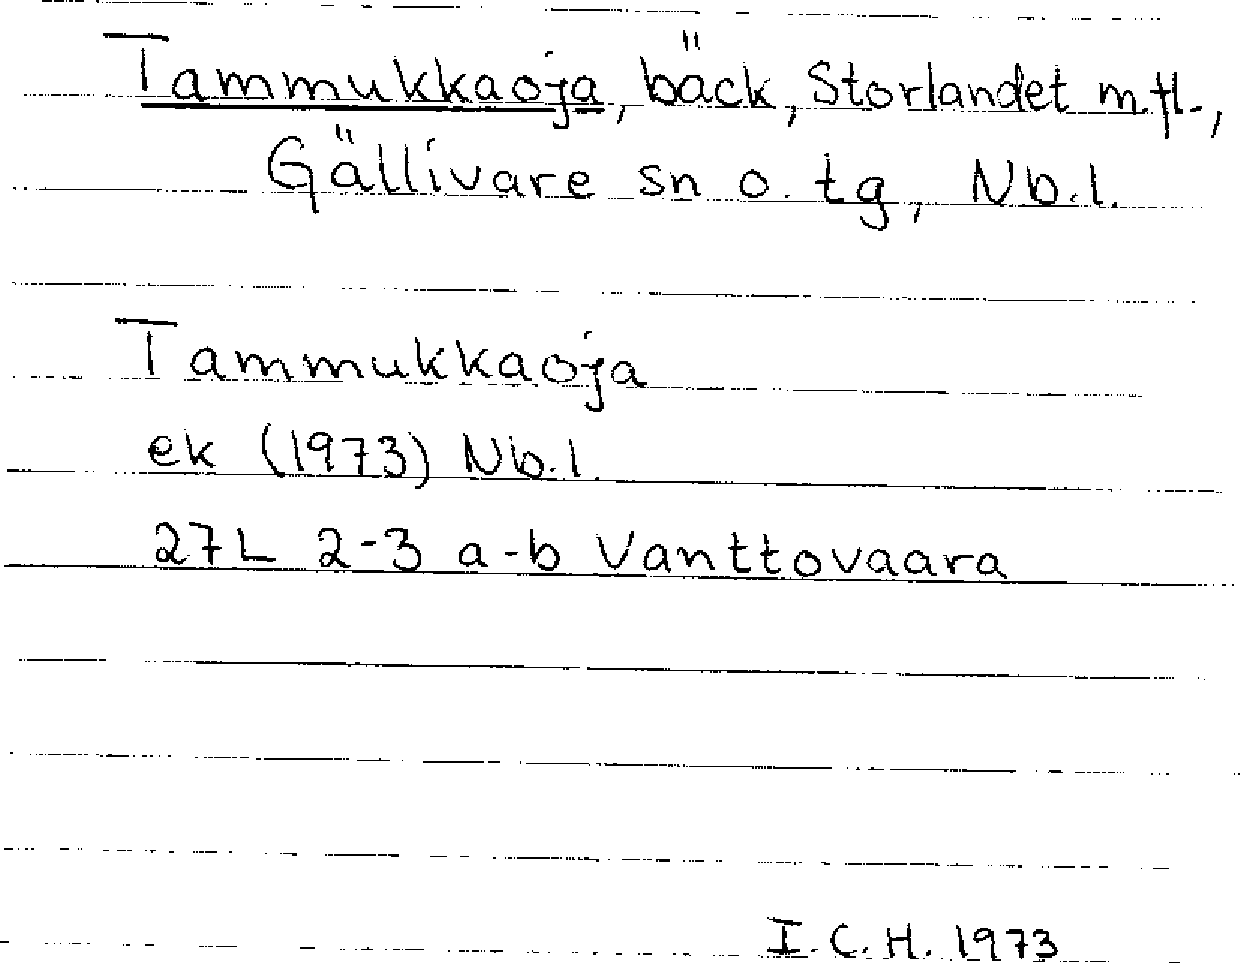 Tammukkaoja, bäck, Storlandet m.fl.,
Gällivare sn o. tg, Nb.l.
Tammukkaoja
ek (1973) Nb.l.
27L 2-3 a-b Vanttovaara
I.C.H. 1973